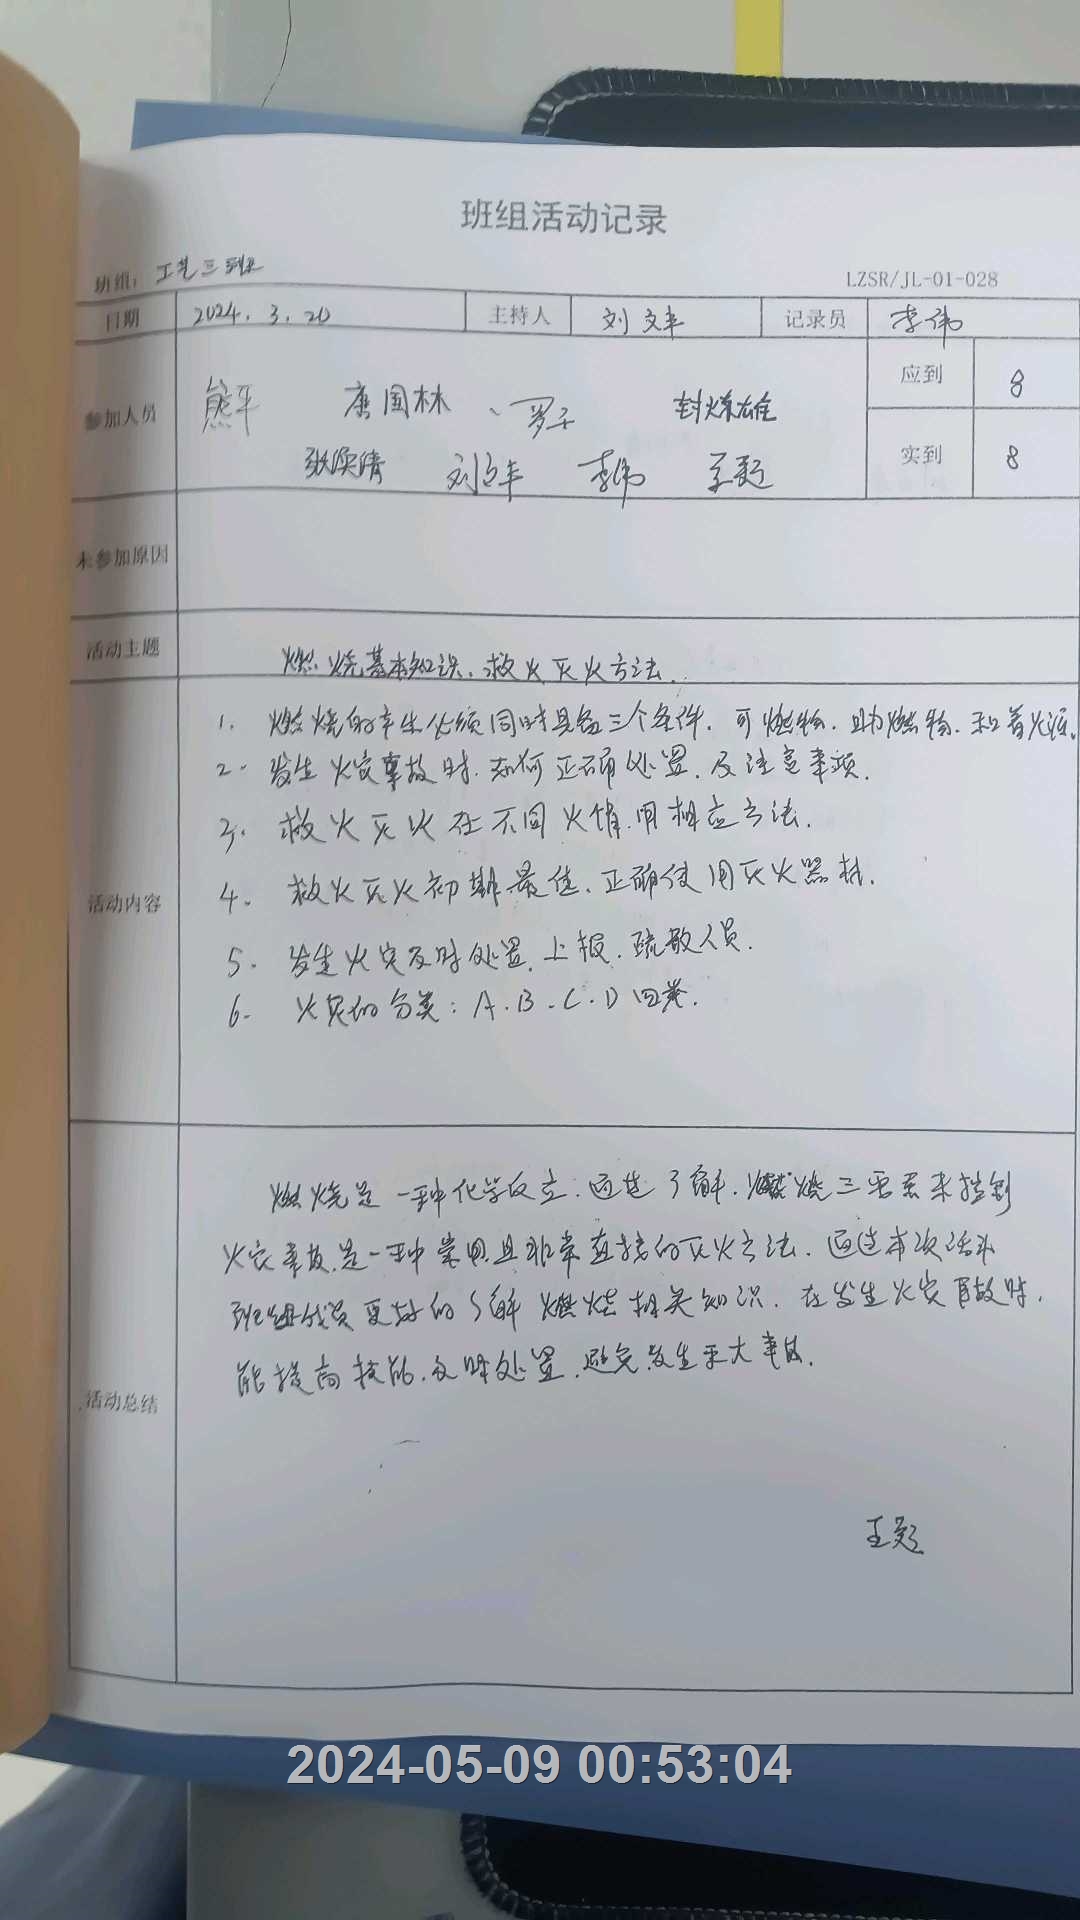 班组活动记录
班组：工艺三班 LZSR/JL-01-028
日期 2024.3.20 主持人 刘文丰 记录员 李伟
参加人员 熊平 唐国林 罗 应到 8
刘文丰 李伟 王 实到 8
未参加原因
活动主题 燃烧基本知识、救火灭火方法.
活动内容
1. 燃烧的产生必须同时具备三个条件，可燃物、助燃物、和着火源。
2. 发生火灾事故时，如何正确处置，及注意事项.
3. 救火灭火在不同火情，用相应方法.
4. 救火灭火初期最佳，正确使用灭火器材.
5. 发生火灾及时处置、上报、疏散人员.
6. 火灾的分类：A.B.C.D四类.
活动总结
燃烧是一种化学反应，通过了解，燃烧三要素来控制
火灾事故，是一种常用且非常直接的灭火方法，通过本次活动
班组成员更好的了解燃烧相关知识，在发生火灾事故时，
能提高技能，及时处置，避免发生重大事故.
王
2024-05-09 00:53:04